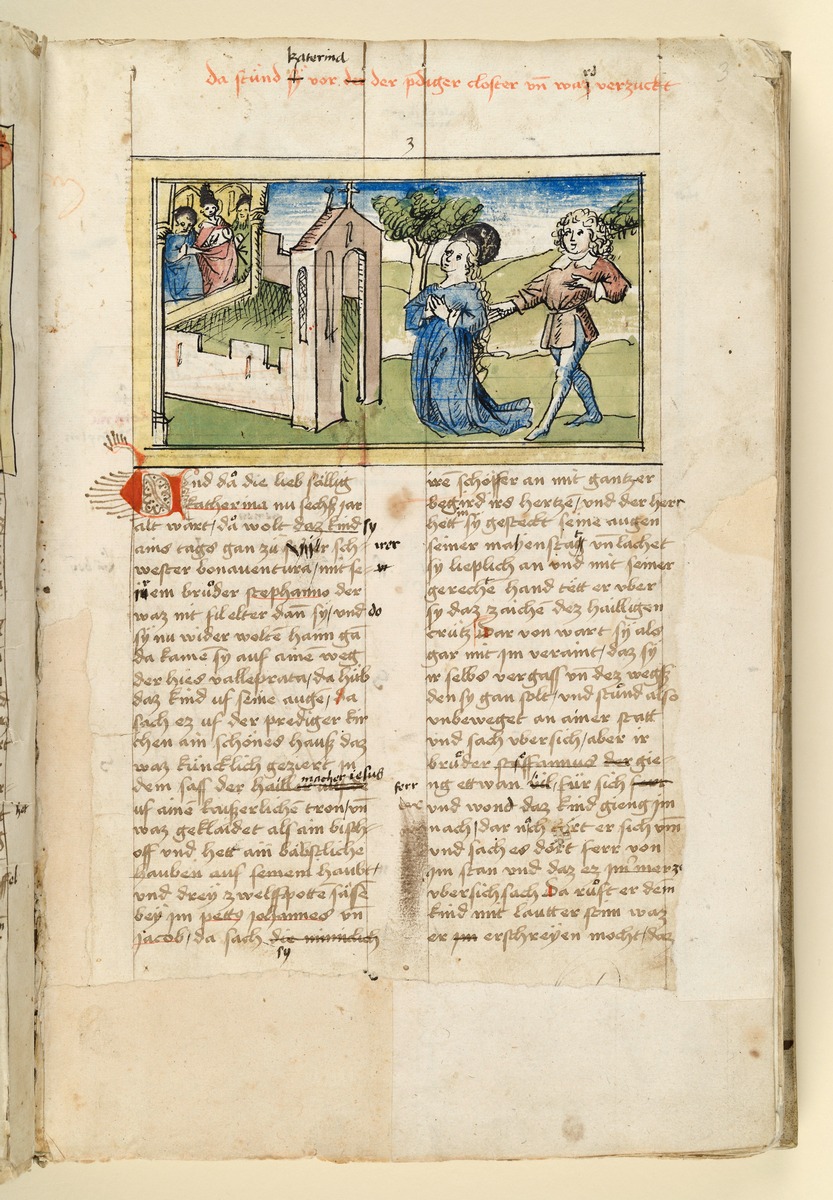 katerina
da stůnd sÿ vor der der pdiger closter vn̄ waz rd verzuckt
3
Und då die lieb sällig
katherina nu sechß jar
alt wart, då wolt daz kind sy
ains tags gan zů ir sch-
wester bonauentura, mit se-
inem brůder stephanno der
waz mit fil elter dann sy, vnd do
sy nu wider wolten hann ga
da kamē sy auf ainē weg
der hies valleprata, da hůb
daz kind uf seine augē, da
sach ez uf der prediger kir
chen ain schönes hauß daz
waz künclich geziert, in
dem saß der hailler macher iesus
uf ainē kaißerlichen tron, vn̄
waz geklaidet als ain bisch-
off vnd hett ain bäbstliche
hauben auf seinem haubt,
vnd drey zwelffpotten säße
bey im petts johannes vn̄
jacob, da sach die minnlich
sy
irē schöpfer an mit gantzer
begird irs hertzē, vnd der herr
hett in sy gesteckt seine augen
seiner mayenstatt vn̄ lachet
sy lieplich an vnd mit seiner
gerechē hand tett er vber
sy daz zaichē dez hailligen
crütz Dar von wart sy als
gar mit im veraint, daz sy
ir selbs vergaß vn̄ dez wegß
den sy gan solt, vnd stůnd also
vnbeweget an ainer statt
vnd sach vbersich, aber ir
brůder steffannus der gie-
ng ettwan vil für sich ferr
vnd wond daz kind gieng im
nach, dar nǎch kört er sich vm̄
vnd sach es dört ferr von
im stan vnd daz ez im̄merz
vbersich sach Da růfft er dem
kind mit lautter stim waz
er im erschreyen mocht, daz